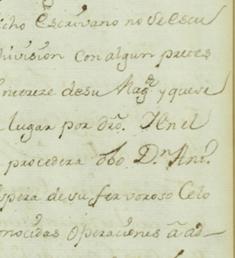 cho Escrivano no se escu
hivision con algun pretes
merece de su Mag.d y que se
lugar por dro. Y en el
procedera dho D.n Ant.o
spera de su fervoroso Celo
onocidas Operaciones â ad-